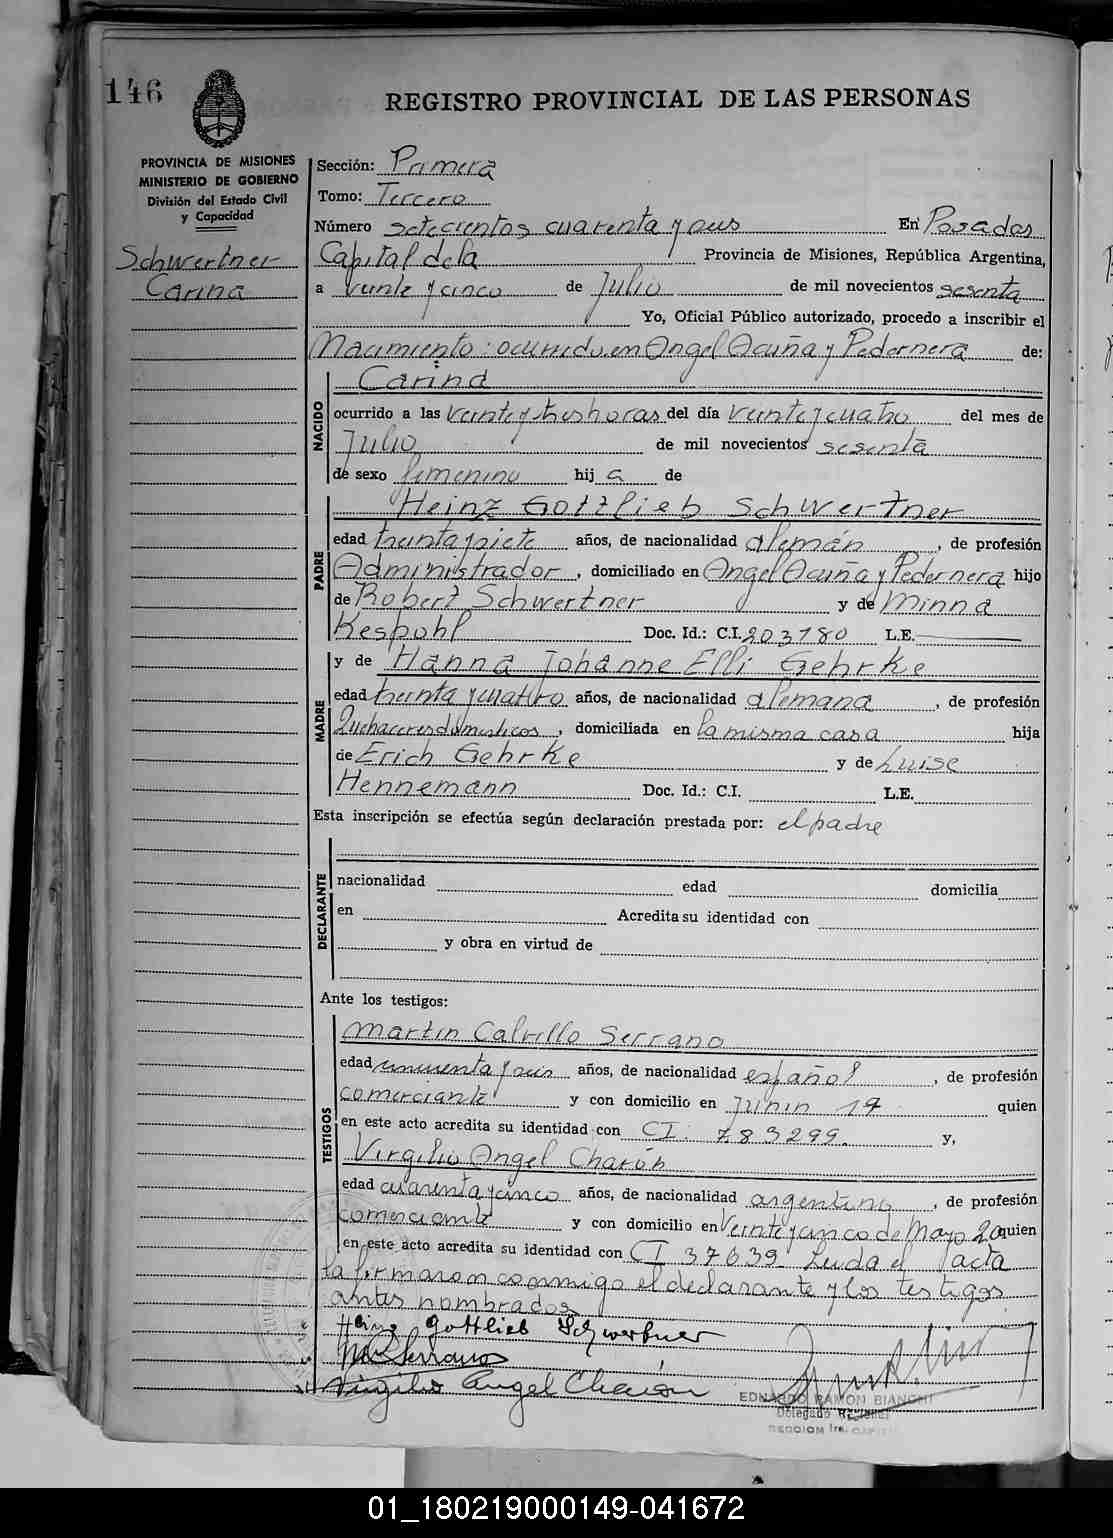 146
REGISTRO PROVINCIAL DE LAS PERSONAS
PROVINCIA DE MISIONES
MINISTERIO DE GOBIERNO
División del Estado Civil
y Capacidad
Schwertner
Carina
Sección: Primera
Tomo: Tercero
Número setecientos cuarenta y seis En Posadas
Capital de la Provincia de Misiones, República Argentina,
a veinte y cinco de Julio de mil novecientos sesenta
Yo, Oficial Público autorizado, procedo a inscribir el
Nacimiento: ocurrido en Angel Acuña y Pedernera de:
NACIDO
Carina
ocurrido a las veinte y tres horas del día veinte y cuatro del mes de
Julio de mil novecientos sesenta
de sexo femenino hij a de
PADRE
Heinz Gottlieb Schwertner
edad treinta y siete años, de nacionalidad alemán, de profesión
Administrador, domiciliado en Angel Acuña y Pedernera hijo
de Robert Schwertner y de Minna
Kespohl Doc. Id.: C.I. 203780 L.E.
MADRE
y de Hanna Johanne Elli Gehrke
edad treinta y cuatro años, de nacionalidad alemana, de profesión
Quehaceres domesticos, domiciliada en la misma casa hija
de Erich Gehrke y de Luise
Hennemann Doc. Id.: C.I. L.E.
Esta inscripción se efectúa según declaración prestada por: el padre
DECLARANTE
nacionalidad edad domicilia
en Acredita su identidad con
y obra en virtud de
Ante los testigos:
TESTIGOS
Martin Calvillo Serrano
edad cincuenta y seis años, de nacionalidad español, de profesión
comerciante y con domicilio en Junin 19 quien
en este acto acredita su identidad con CI. 783299. y,
Virgilio Angel Charón
edad cuarenta y cinco años, de nacionalidad argentino, de profesión
comerciante y con domicilio en Veinte y cinco de Mayo 20 quien
en este acto acredita su identidad con CI 37639 Leida el acta
la firmaron conmigo el declarante y los testigos
antes nombrados
Heinz Gottlieb Schwertner
M. C. Serrano
Virgilio Angel Charón
EDUARDO RAMON BIANCHI
Delegado Regional
SECCION 1ra. CAPITAL
01_180219000149-041672